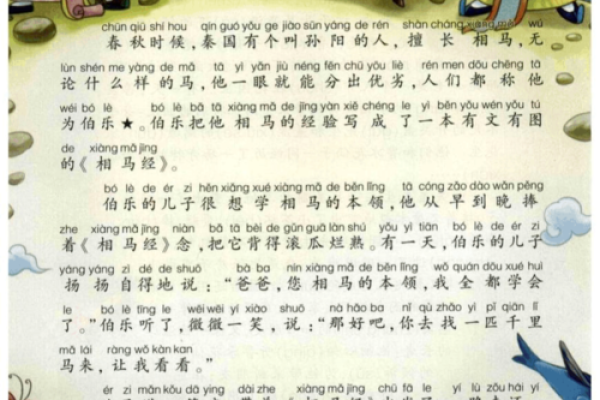 chūn qiū shí hou qín guó yǒu ge jiào sūn yáng de rén shàn cháng xiàng mǎ wú
春秋时候,秦国有个叫孙阳的人,擅长相马,无
lùn shén me yàng de mǎ tā yì yǎn jiù néng fēn chū yōu liè rén men dōu chēng tā
论什么样的马,他一眼就能分出优劣,人们都称他
wéi bó lè bó lè bǎ tā xiàng mǎ de jīng yàn xiě chéng le yì běn yǒu wén yǒu tú
为伯乐★。伯乐把他相马的经验写成了一本有文有图
de xiàng mǎ jīng
的《相马经》。
bó lè de ér zi hěn xiǎng xué xiàng mǎ de běn lǐng tā cóng zǎo dào wǎn pěng
伯乐的儿子很想学相马的本领,他从早到晚捧
zhe xiàng mǎ jīng niàn bǎ tā bèi de gǔn guā làn shú yǒu yì tiān bó lè de ér zi
着《相马经》念,把它背得滚瓜烂熟。有一天,伯乐的儿子
yáng yáng zì dé de shuō bà ba nín xiàng mǎ de běn lǐng wǒ quán dōu xué huì
扬扬自得地说:“爸爸,您相马的本领,我全都学会
le bó lè tīng le wēi wēi yí xiào shuō nà hǎo ba nǐ qù zhǎo yì pǐ qiān lǐ
了。”伯乐听了,微微一笑,说:“那好吧,你去找一匹千里
mǎ lái ràng wǒ kàn kan
马来,让我看看。”
ér zi mǎn kǒu dā ying dài zhe xiàng mǎ jīng chū fā le yí lù zǒu